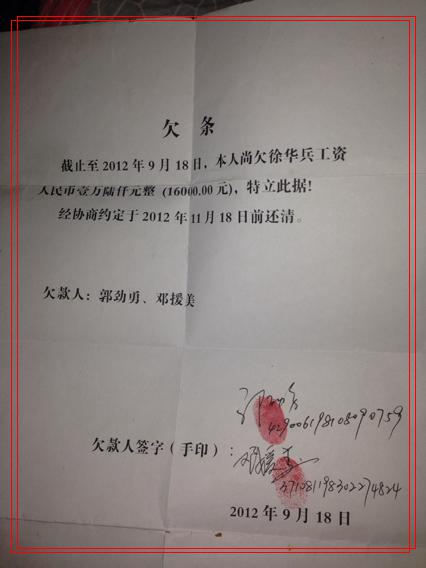 欠 条
截止至 2012 年 9 月 18 日，本人尚欠徐华兵工资
人民币壹万陆仟元整 (16000.00 元)，特立此据！
经协商约定于 2012 年 11 月 18 日前还清。
欠款人：郭劲勇、邓援美
429006198108090759
欠款人签字（手印）：
邓援美
371081198302274824
2012 年 9 月 18 日